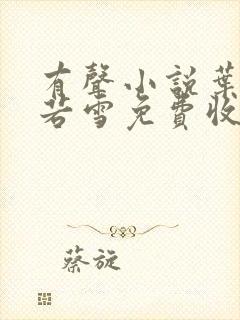 有聲小說葉
若雪免費收
蔡旋